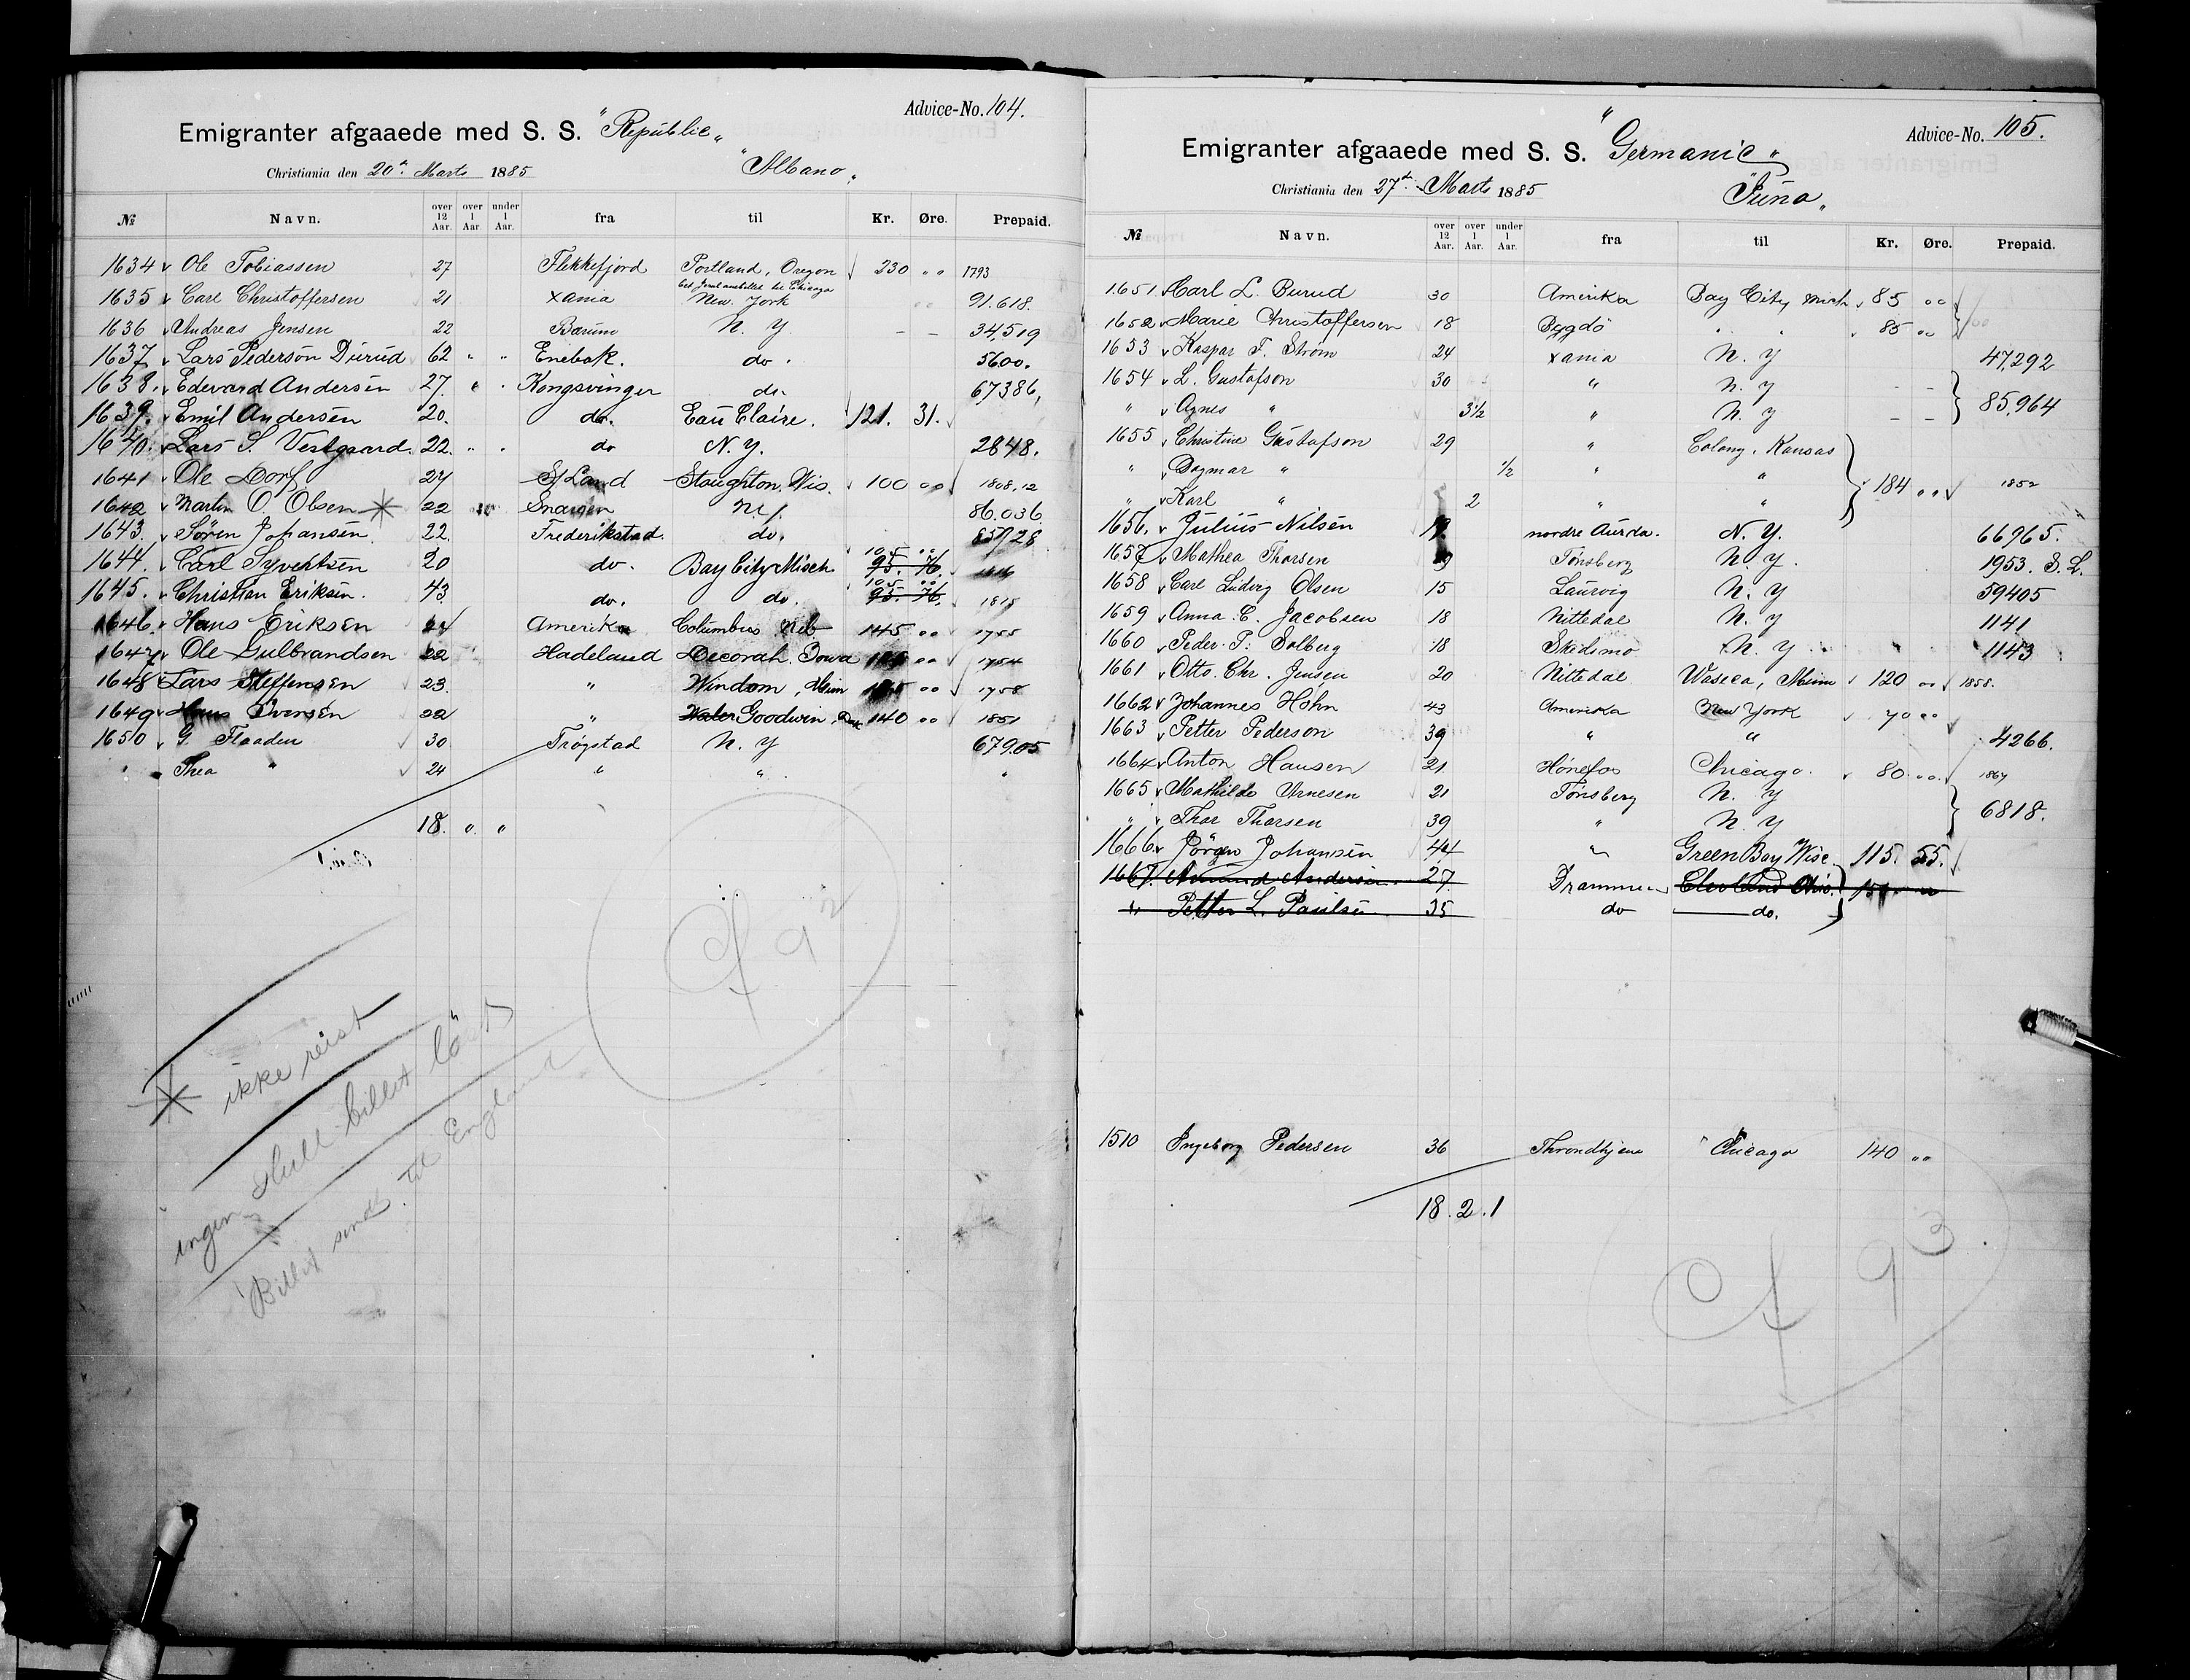 Advice-No. 104.
Emigranter afgaaede med S. S. "Republic"
Christiania den 20de Marts 1885 "Albano"
№ Navn. over 12 Aar. over 1 Aar. under 1 Aar. fra til Kr. Øre. Prepaid.
1634 Ole Tobiassen 27 Flekkefjord Portland, Oregon 230 " " 1793
1635 Carl Christoffersen 21 Xania New York " " 91.618.
1636 Andreas Jensen 22 Bærum N. Y. – – 34,519
1637 Lars Pederson Durud 62 " " Enebak. do. 5600.
1638. Edevard Andersen 27. " " Kongsvinger do. 67386,
1639. Emil Andersen 20. do. Eau Claire. 121. 31.
1640. Lars S. Vestgaard. 22. " " do N. Y. 2848.
1641 Ole Dorf 27 S. Land Stoughton, Wis. 100 " " 1808.12
1642 Martin O. Olsen * 22 N.Y. 86.036
1643. Søren Johansen 22. Frederikstad. do.
1644. Carl Syvertsen 20 do. Bay City Misch. 105 " " 95. 76.
1645. Christian Eriksen. 43. do. do. 105 " " 95. 76. 1815
1646. Hans Eriksen 24 Amerika Columbus Neb. 145 " " 1755
1647 Ole Gulbrandsen 22 Hadeland Decorah. Iowa " " 1754
1648 Lars Steffensen 23. " Windom, Minn " " 1758
1649 Hans Iversen 22 " Goodwin, Dak 140 " " 1851
1650 G. Flaaden 30 Trøgstad N. Y 67905
" Thea " 24 " " "
18. " "
* ikke reist
ingen skull billet løst
Billet sendt til England
92
Advice-No. 105.
Emigranter afgaaede med S. S. "Germanic"
Christiania den 27de Marts 1885 "Juno"
№ Navn. over 12 Aar. over 1 Aar. under 1 Aar. fra til Kr. Øre. Prepaid.
1651 Carl L. Burud 30 Amerika Bay City Mich 85 " "
1652 Marie Christoffersen 18 Bygdö " " 85 " "
1653 Kaspar F. Strøm 24 Xania N. Y 47,292
1654 L. Gustafson 30 " N. Y – – 85,964
" Agnes " 3½ " N. Y – –
1655 Christine Gustafson 29 " Colony, Kansas
" Dagmar " ½ " " 184 " " 1852
" Karl " 2 " "
1656. Julius Nilsen 19. nordre Aurda. N. Y. 66965.
1657 Mathea Thorsen Tønsberg N. Y. 1953. S. L.
1658 Carl Ludvig Olsen 15 Laurvig N. Y 59405
1659 Anna C. Jacobsen 18 Nittedal N. Y 1141
1660 Peder P. Solberg 18 Skedsmo N. Y 1143
1661 Otto Chr. Jensen 20 Nittedal Waseca, Minn 120 " " 1858.
1662 Johannes Höhn 43 Amerika New York 70 " "
1663 Petter Pederson 39 " " 4266.
1664 Anton Hansen 21 Hønefos Chicago. 80 " " 1864
1665 Mathilde Arnesen 21 Tønsberg N. Y 6818.
" Thor Thorsen 39 " N. Y
1666. Jörgen Johansen 44 " Green Bay Wisc. 115. 55.
1667. Amund Andersen 27 Drammen Cleveland Ohio.
" Petter L. Paulsen 35 do do.
1510 Ingeborg Pedersen 36 Throndhjem Chicago 140 " "
18. 2. 1
93